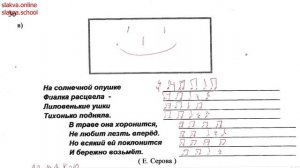 slakva.online
slakva.school
в)
На солнечной опушке
Фиалка расцвела -
Лиловенькие ушки
Тихонько подняла.
В траве она хоронится,
Не любит лезть вперёд.
Но всякий ей поклонится
И бережно возьмёт.
( Е. Серова )